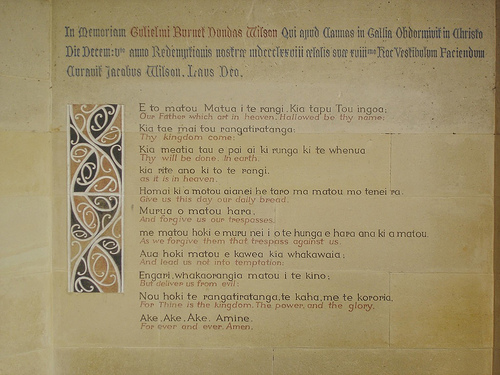 In Memoriam Gulielmi Burnet Dundas Wilson Qui apud Cannas in Gallia Obdormivit in Christo
Die Decem: anno Redemptionis nostræ mdccclxxviii ætatis suæ xviii Hoc Vestibulum Faciendum
Curavit Jacobus Wilson. Laus Deo.
E to matou Matua i te rangi, Kia tapu Tou ingoa;
Our Father which art in heaven, Hallowed be thy name;
Kia tae mai tou rangatiratanga;
Thy kingdom come;
Kia meatia tau e pai ai ki runga ki te whenua
Thy will be done. In earth.
kia rite ano ki to te rangi.
as it is in heaven.
Homai ki a matou aianei he taro ma matou mo tenei ra.
Give us this day our daily bread.
Murua o matou hara,
And forgive us our trespasses.
me matou hoki e muru nei i o te hunga e hara ana ki a matou.
As we forgive them that trespass against us.
Aua hoki matou e kawea kia whakawaia;
And lead us not into temptation;
Engari, whakaorangia matou i te kino;
But deliver us from evil;
Nou hoki te rangatiratanga, te kaha, me te kororia.
For Thine is the kingdom, The power, and the glory.
Ake, Ake, Ake. Amine.
For ever and ever. Amen.